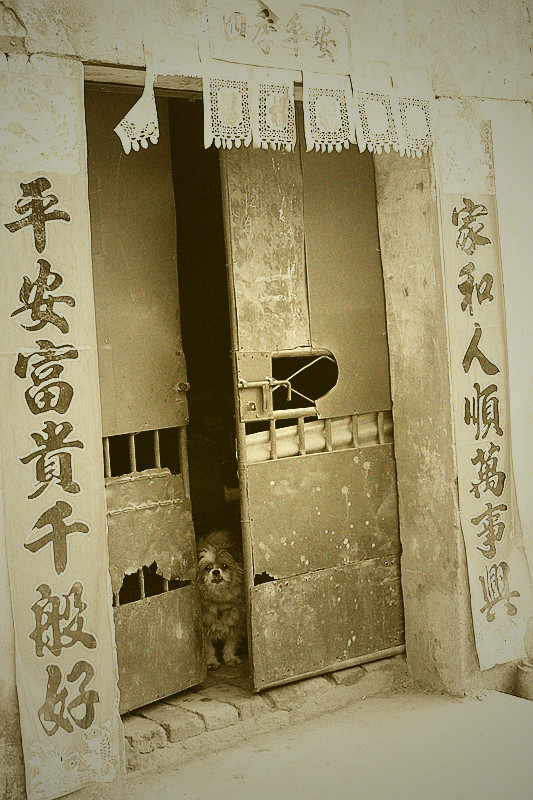 四季平安
家和人順萬事興
平安富貴千般好